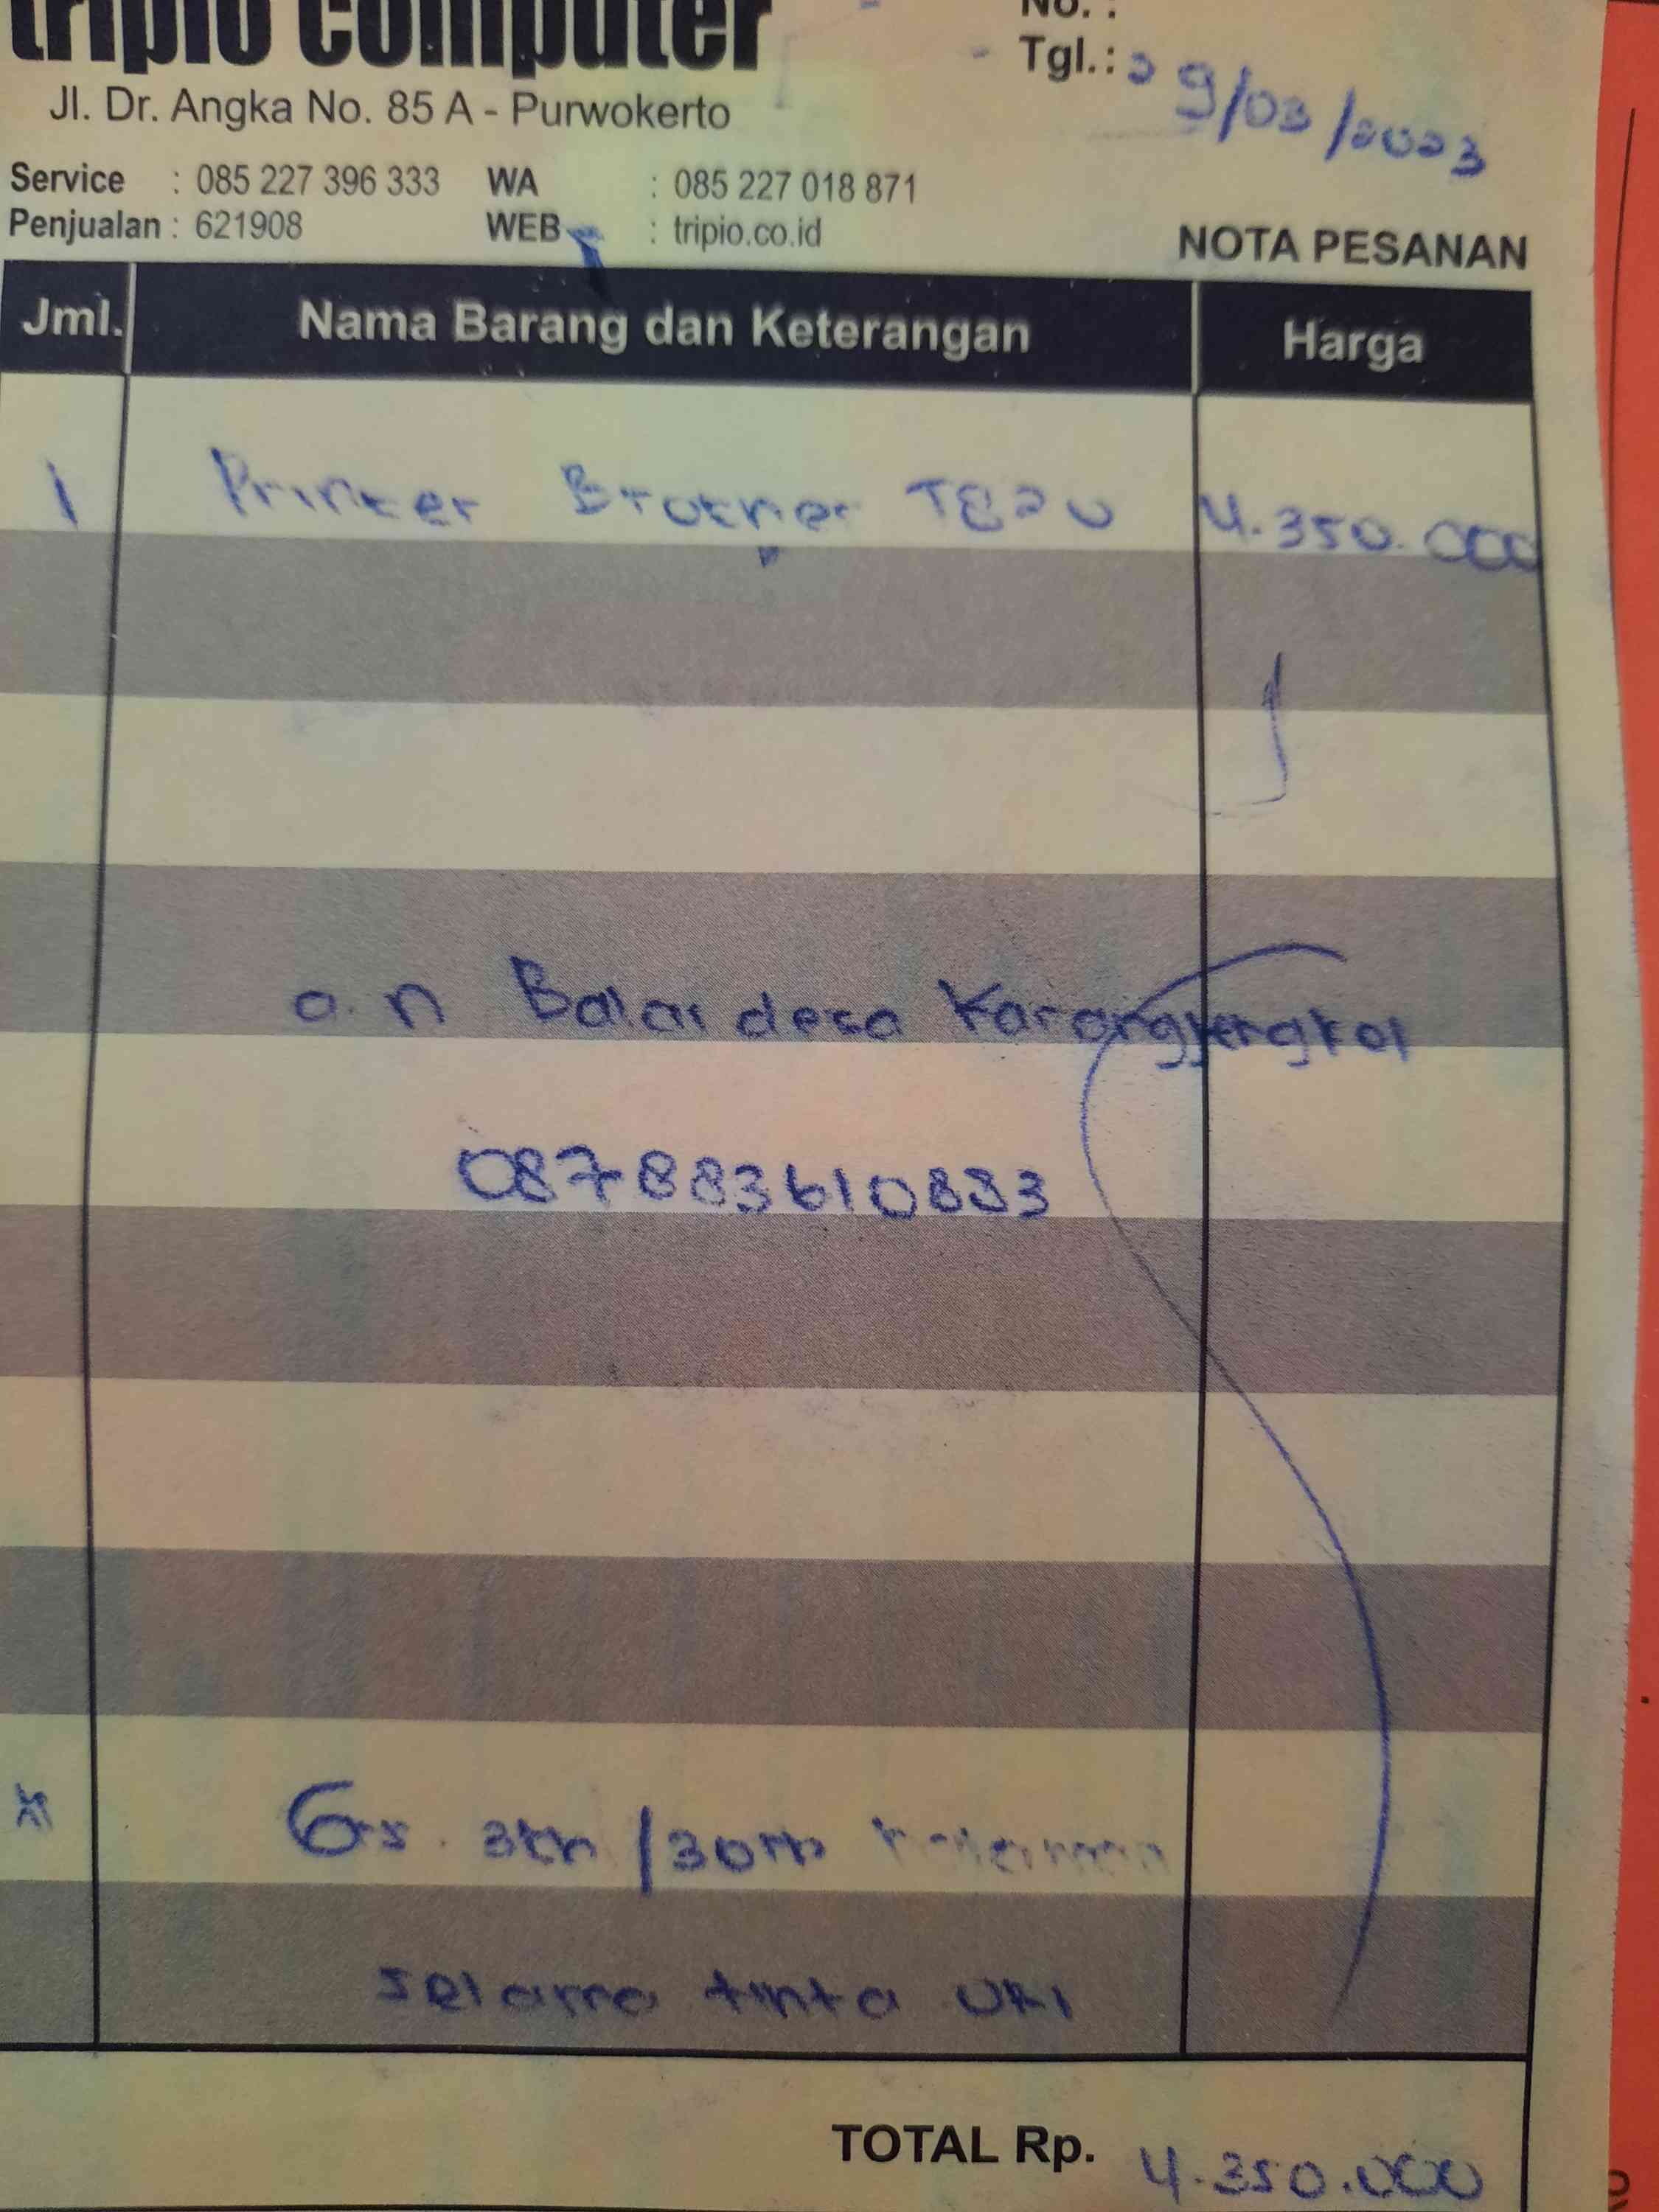 tripio computer
No. :
Tgl.: 29/03/2023
Jl. Dr. Angka No. 85 A - Purwokerto
Service : 085 227 396 333 WA : 085 227 018 871
Penjualan : 621908 WEB : tripio.co.id
NOTA PESANAN
Jml. Nama Barang dan Keterangan Harga
1 Printer Brother T820 4.350.000
a.n Balai desa Karangjengkol
087883610833
Grs. 3th/30rb
selama tinta ORI
TOTAL Rp. 4.350.000